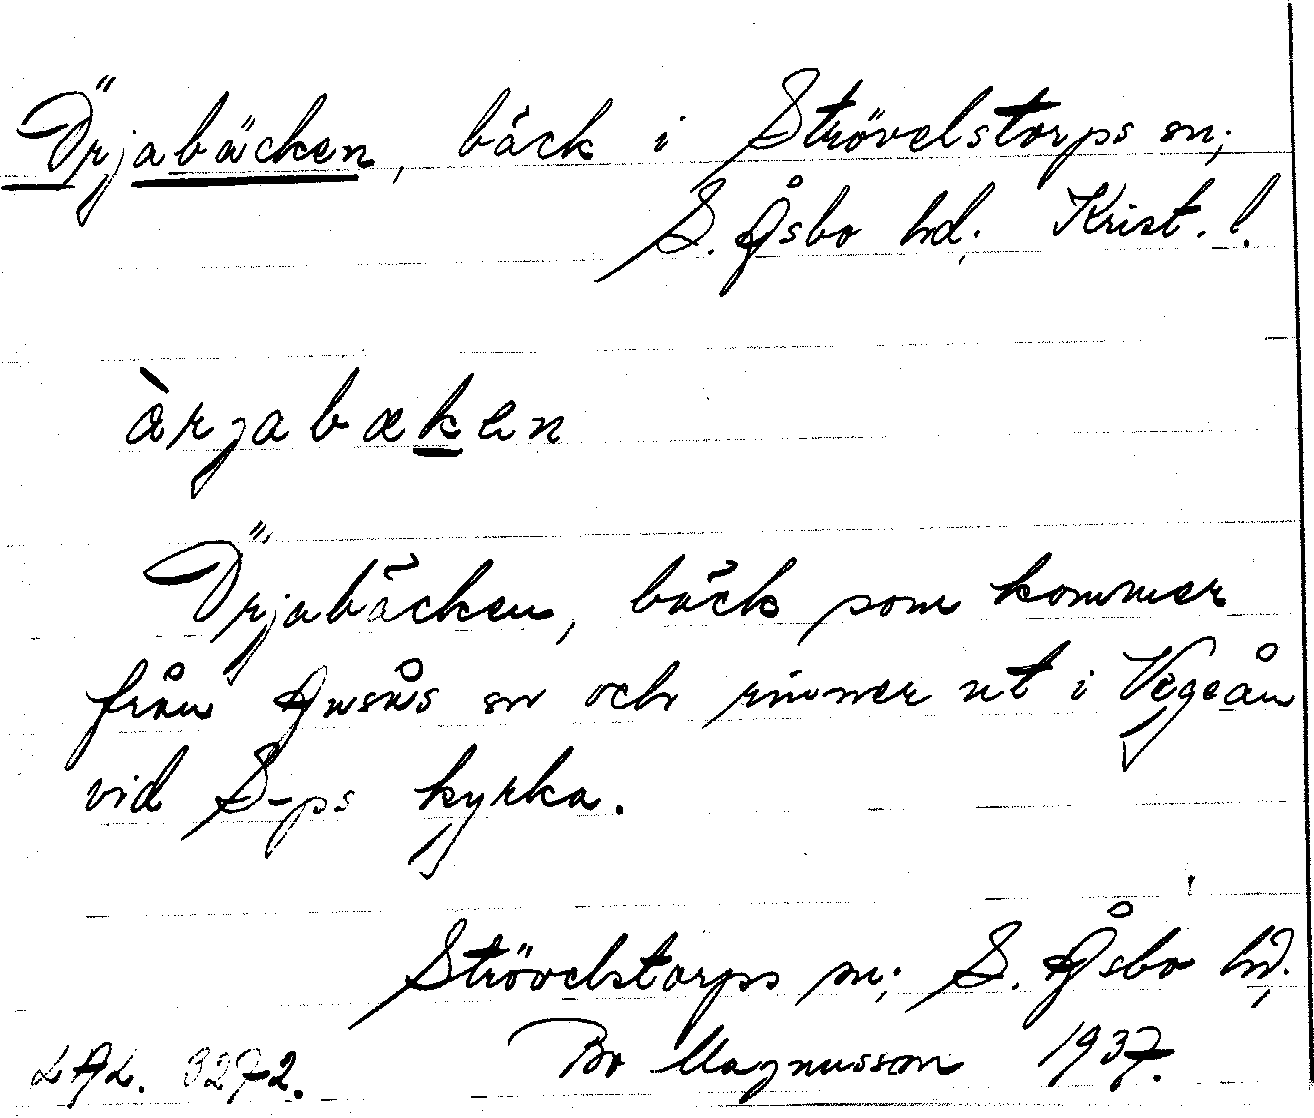 Örjabäcken, bäck i Strövelstorps sn;
S. Åsbo hd. Krist. l.
àrjabæken
Örjabäcken, bäck som kommer
från Ausås sn och rinner ut i Vegeån
vid S-ps kyrka.
Strövelstorps sn; S. Åsbo hd.
LAL. 3272. Bo Magnusson 1937.